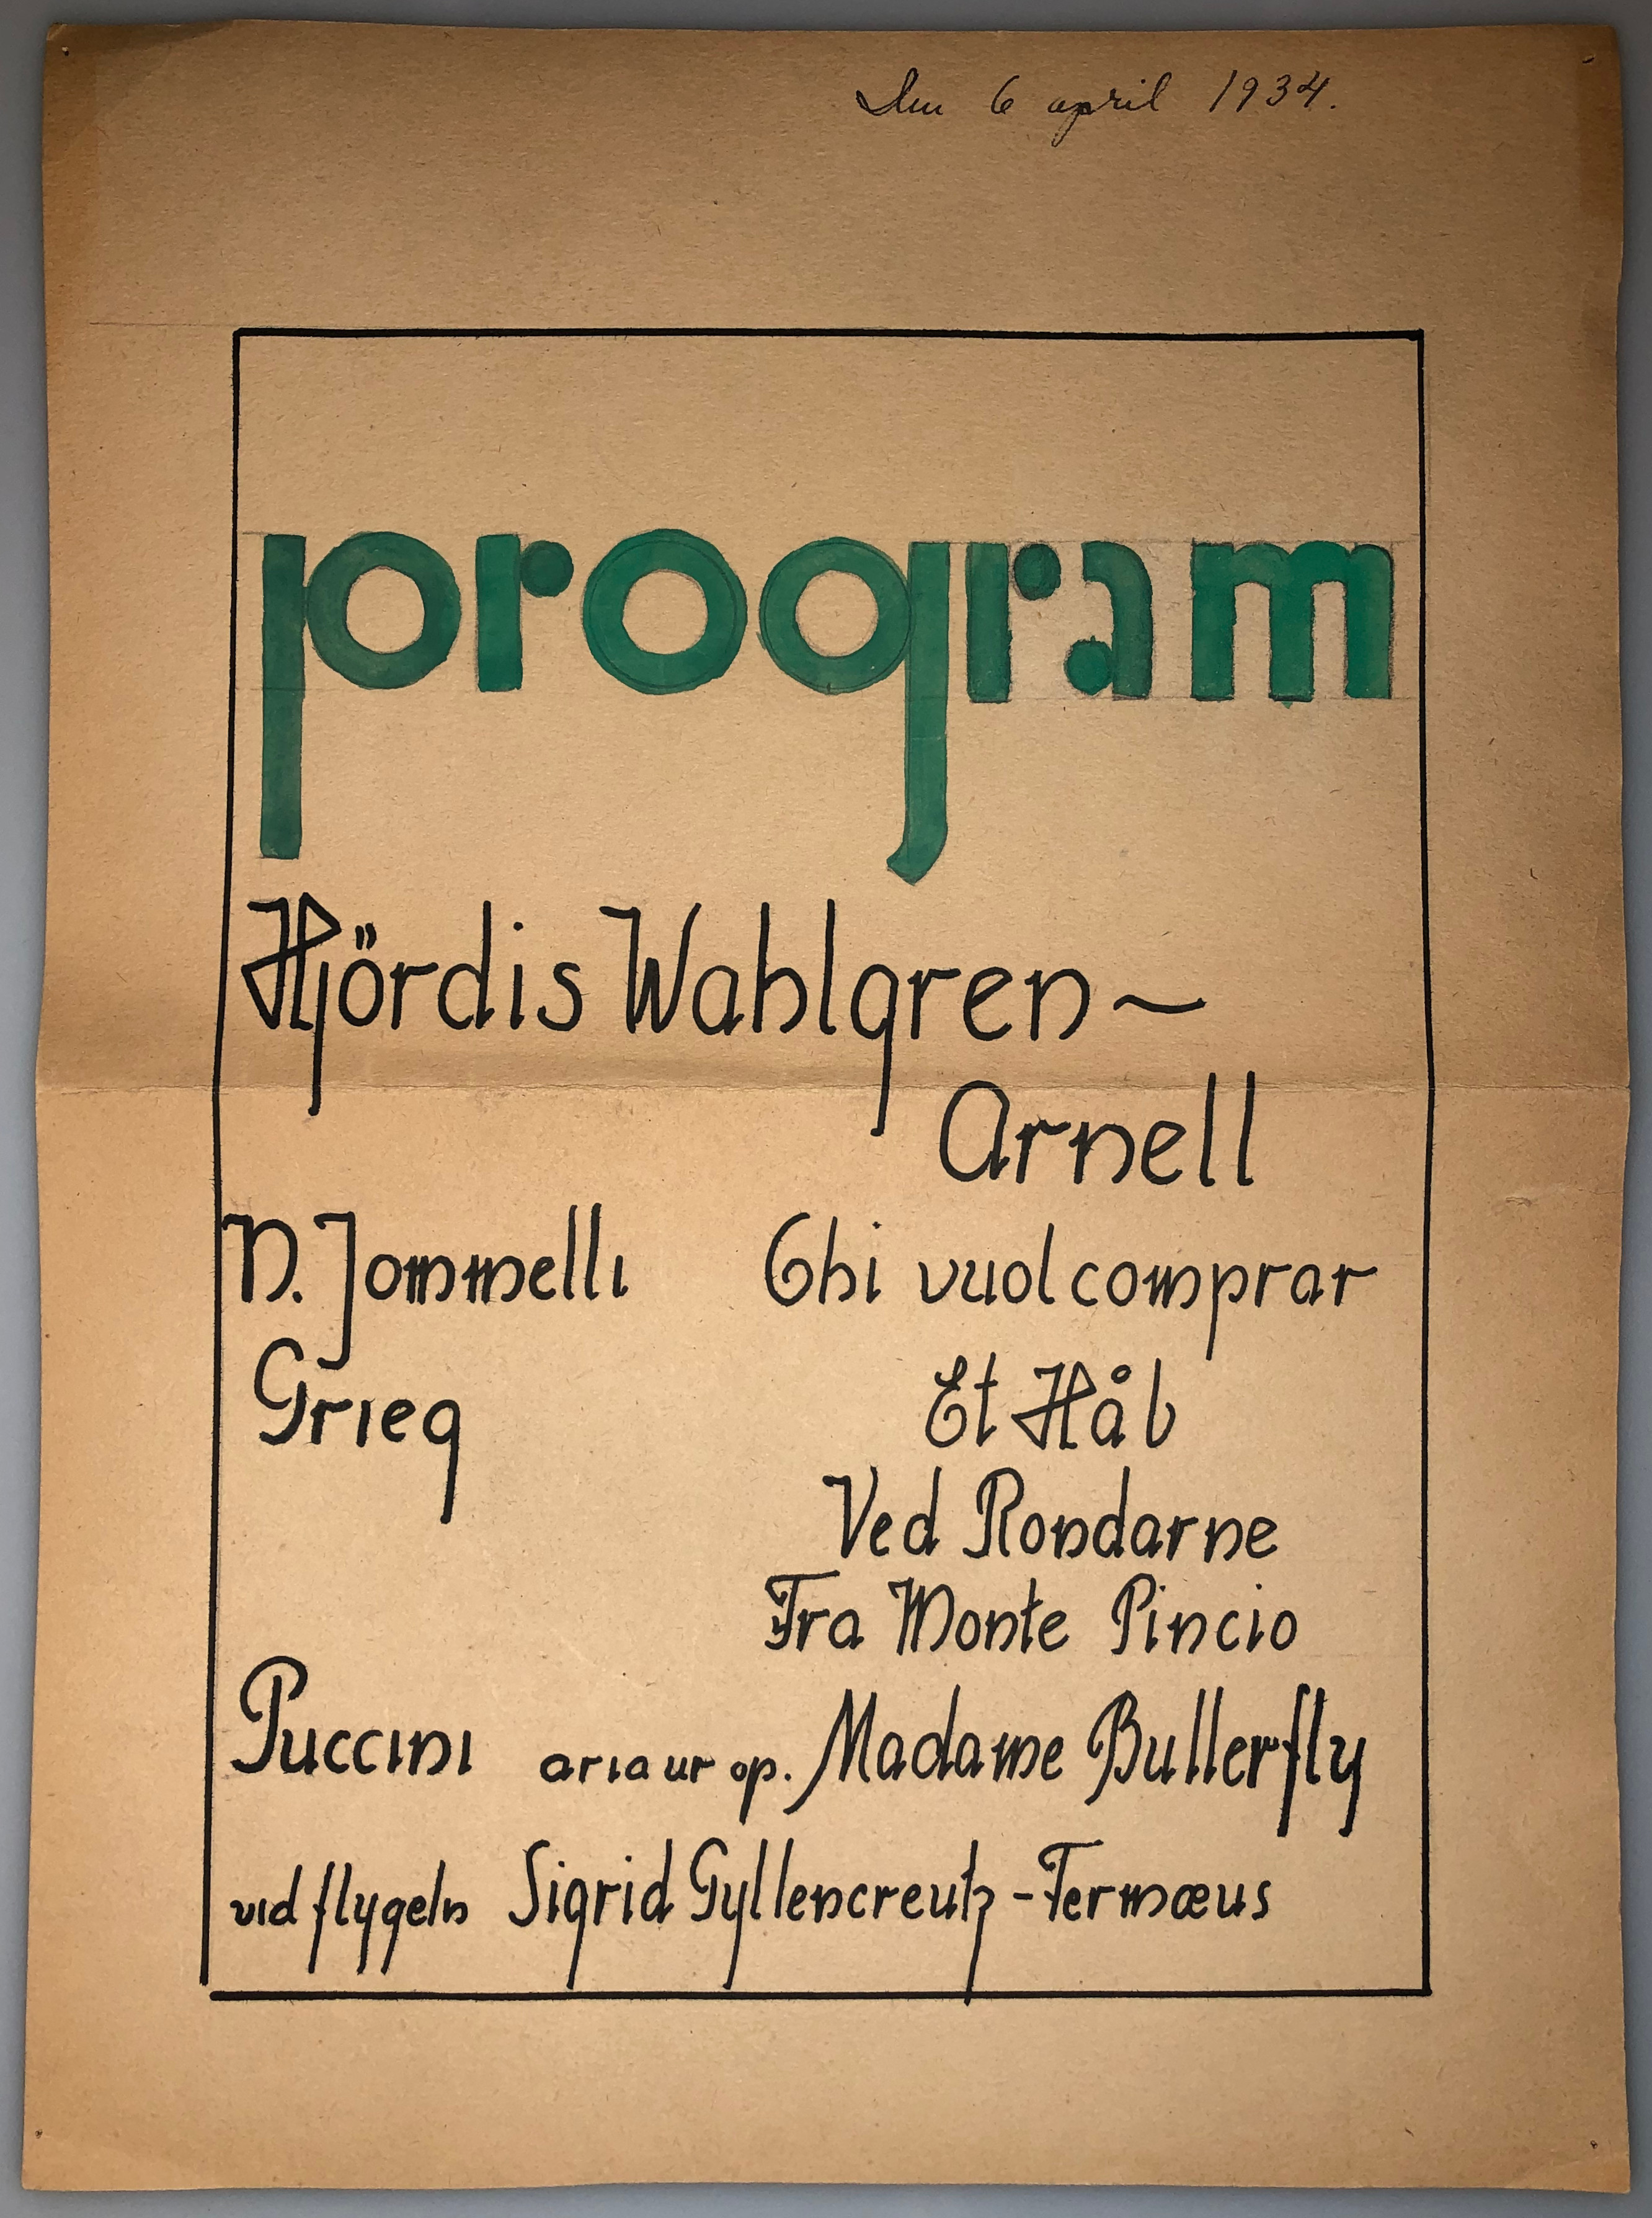 Den 6 april 1934.
program
Hjördis Wahlgren~
Arnell
N. Jommelli Chi vuol comprar
Grieg Et Håb
Ved Rondarne
Fra Monte Pincio
Puccini aria ur op. Madame Butterfly
vid flygeln Sigrid Gyllencreutz-Fermæus